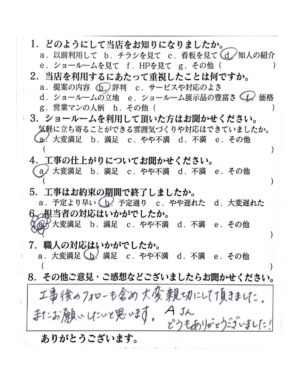 1. どのようにして当店をお知りになりましたか。
a. 以前利用して b. チラシを見て c. 看板を見て d. 知人の紹介
e. ショールームを見て f. HPを見て g. その他（　　）
2. 当店を利用するにあたって重視したことは何ですか。
a. 提案の内容 b. 評判 c. サービスや対応のよさ
d. ショールームの立地 e. ショールーム展示品の豊富さ f. 価格
g. 営業マンの人柄 h. その他（　　）
3. ショールームを利用して頂いた方はお聞かせください。
気軽に立ち寄ることができる雰囲気づくりや対応はできていましたか。
a. 大変満足 b. 満足 c. やや不満 d. 不満 e. その他
（　　）
4. 工事の仕上がりについてお聞かせください。
a. 大変満足 b. 満足 c. やや不満 d. 不満 e. その他
（　　）
5. 工事はお約束の期間で終了しましたか。
a. 予定より早い b. 予定通り c. やや遅れた d. 大変遅れた
6. 担当者の対応はいかがでしたか。
a. 大変満足 b. 満足 c. やや不満 d. 不満 e. その他
（　　）
7. 職人の対応はいかがでしたか。
a. 大変満足 b. 満足 c. やや不満 d. 不満 e. その他
（　　）
8. その他ご意見・ご感想などございましたらお聞かせください。
工事後のフォローも含め大変親切にして頂きました。
またお願いしたいと思います。 Aさん
どうもありがとうございました!
ありがとうございます。